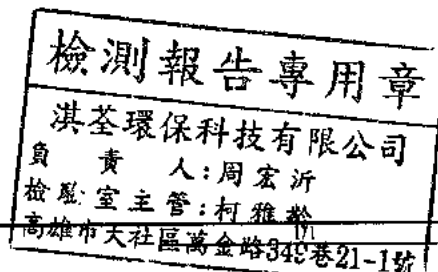 檢測報告專用章
淇荃環保科技有限公司
負責人:周宏沂
檢驗室主管:柯雅齡
高雄市大社區萬金路349巷21-1號